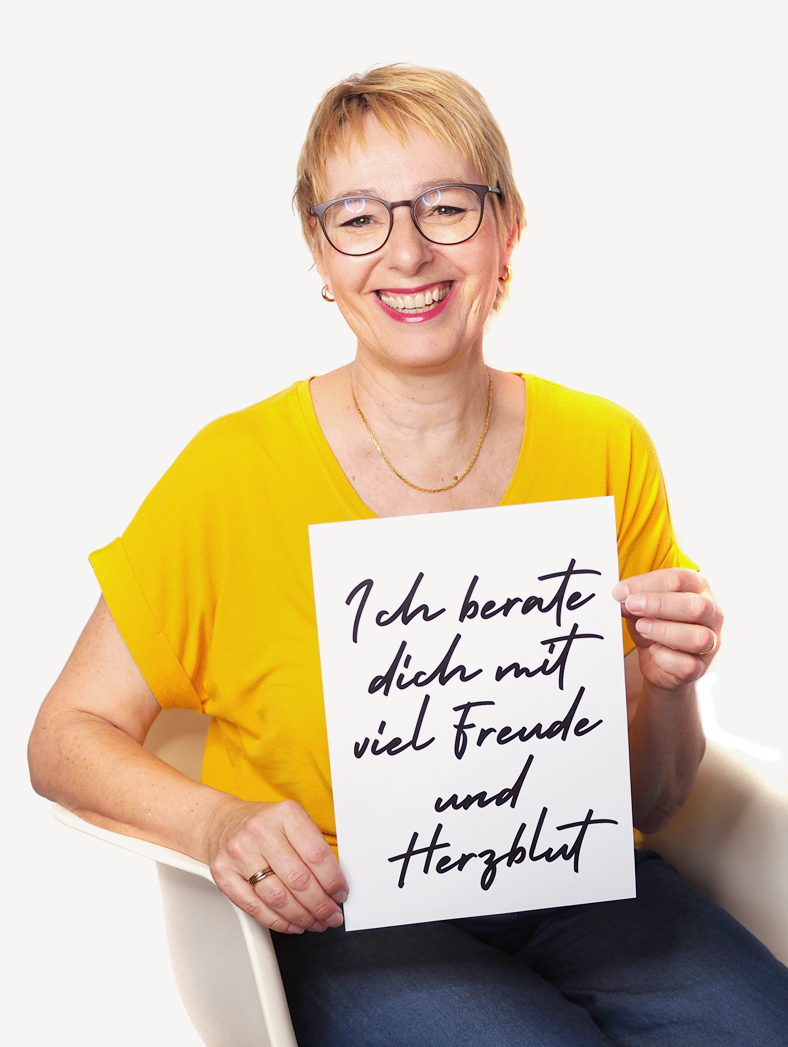 Ich berate
dich mit
viel Freude
und
Herzblut